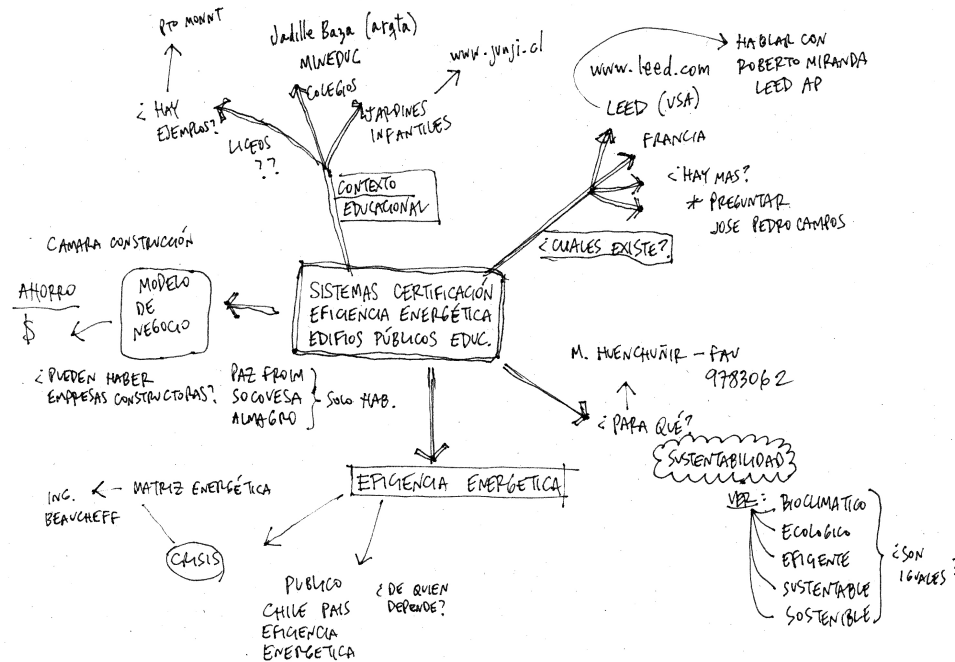 PTO MONNT
¿HAY
EJEMPLOS?
LICEOS
??
Jadille Baza (arqta)
MINEDUC
COLEGIOS
www.junji.cl
JARDINES
INFANTILES
CONTEXTO
EDUCACIONAL
www.leed.com
LEED (USA)
HABLAR CON
ROBERTO MIRANDA
LEED AP
FRANCIA
¿HAY MAS?
* PREGUNTAR
JOSE PEDRO CAMPOS
¿CUALES EXISTE?
CAMARA CONSTRUCCIÓN
AHORRO
$
MODELO
DE
NEGOCIO
SISTEMAS CERTIFICACIÓN
EFICIENCIA ENERGÉTICA
EDIFIOS PÚBLICOS EDUC.
¿PUEDEN HABER
EMPRESAS CONSTRUCTORAS?
PAZ FROIM
SOCOVESA
ALMAGRO
SOLO HAB.
M. HUENCHUÑIR - FAU
9783062
¿PARA QUÉ?
SUSTENTABILIDAD
VER:
BIOCLIMATICO
ECOLOGICO
EFIGENTE
SUSTENTABLE
SOSTENIBLE
¿SON
IGUALES?
EFIGENCIA ENERGETICA
ING. <- MATRIZ ENERGÉTICA
BEAUCHEFF
CRISIS
PUBLICO
CHILE PAIS
EFICIENCIA
ENERGETICA
¿DE QUIEN
DEPENDE?